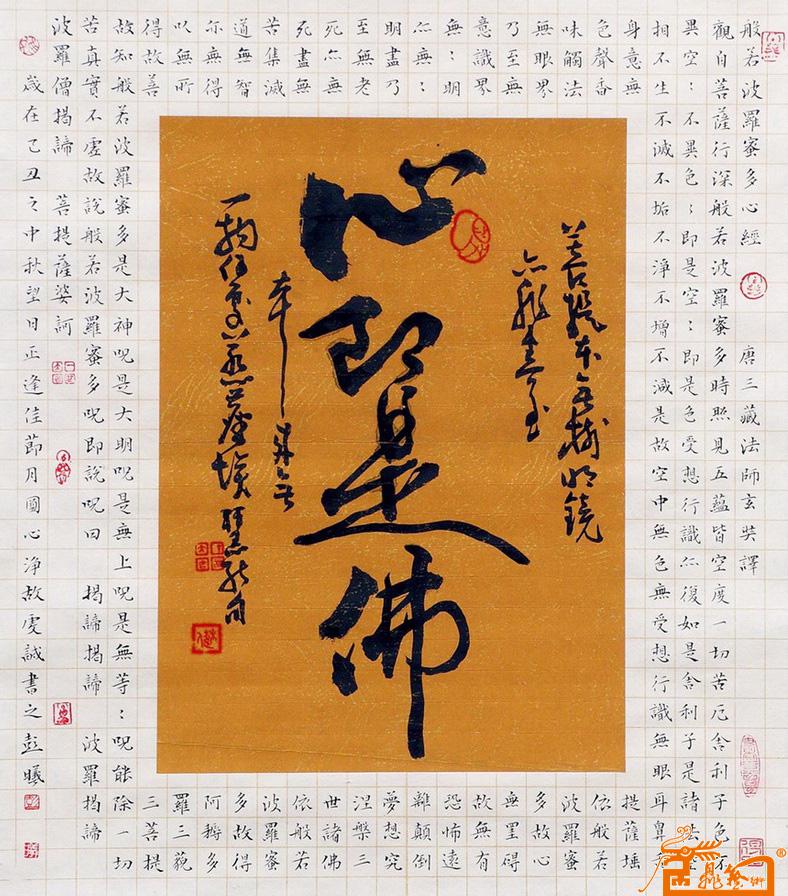 般若波羅蜜多心經 唐三藏法師玄奘譯
觀自菩薩行深般若波羅蜜多時照見五蘊皆空度一切苦厄舍利子色不
異空：不異色：即是空：即是色受想行識亦復如是舍利子是諸法空
相不生不滅不垢不淨不增不減是故空中無色無受想行識無眼耳鼻舌
身意無
色聲香
味觸法
無眼界
乃至無
意識界
無：明
亦無：
明盡乃
至無老
死亦無
死盡無
苦集滅
道無智
亦無得
以無所
得故菩
提薩埵
依般若
波羅蜜
多故心
無罣礙
故無有
恐怖遠
離顛倒
夢想究
涅槃三
世諸佛
依般若
波羅蜜
多故得
阿耨多
羅三藐
三菩提
故知般若波羅蜜多是大神呪是大明呪是無上呪是無等：呪能除一切
苦真實不虛故說般若波羅蜜多呪即說呪曰 揭諦揭諦 波羅揭諦
波羅僧揭諦 菩提薩婆訶
歲在己丑之中秋望日正逢佳節月圓心淨故虔誠書之彭曦
菩提本無樹明鏡
亦非臺
心即是佛
本來無
一物何處惹塵埃 慧能句